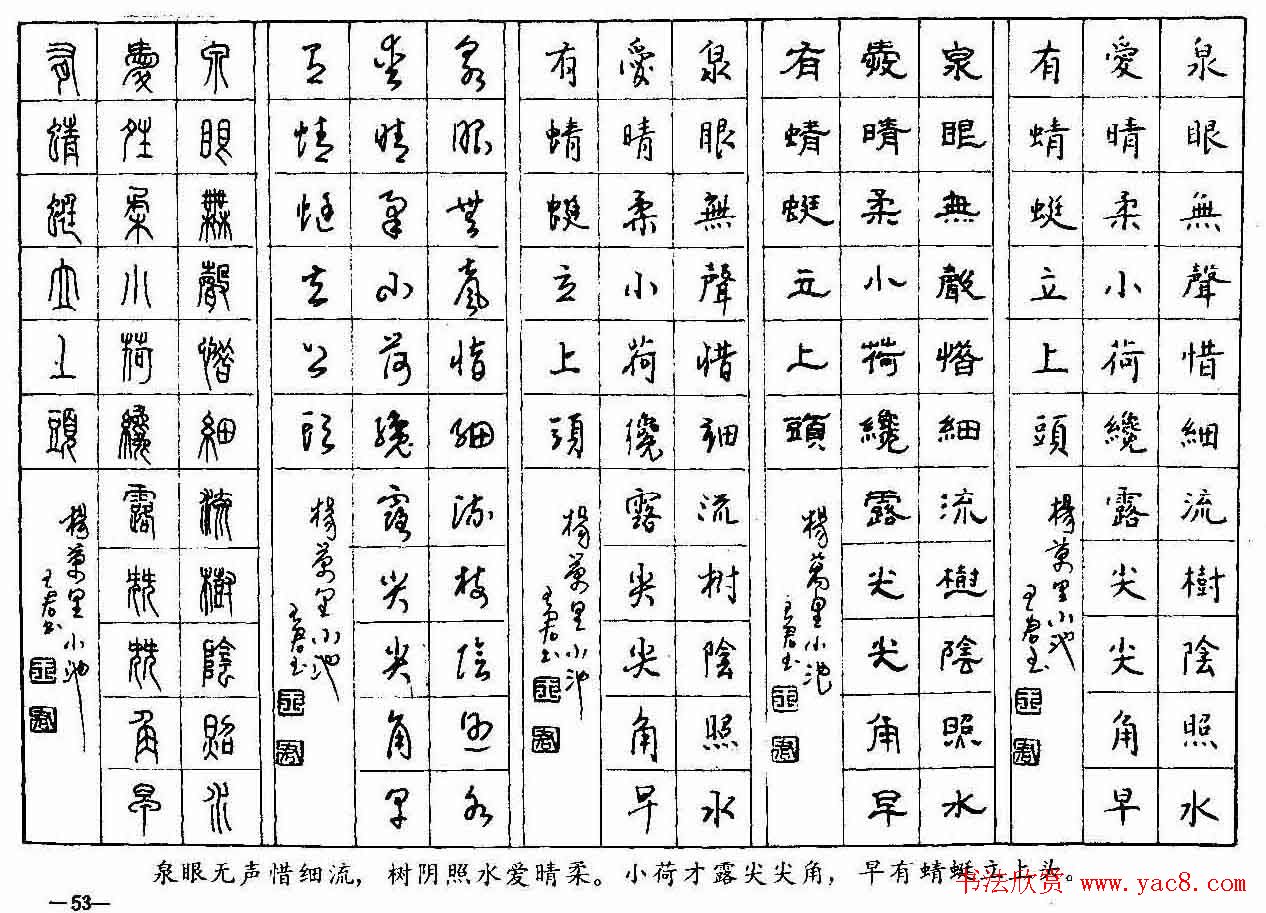 泉眼無聲惜細流樹陰照水
愛晴柔小荷纔露尖尖角早
有蜻蜓立上頭
楊萬里小池
王君書
泉眼無聲惜細流樹陰照水
愛晴柔小荷纔露尖尖角早
有蜻蜓立上頭
楊萬里小池
王君書
泉眼無聲惜細流树陰照水
愛晴柔小荷纔露尖尖角早
有蜻蜓立上頭
楊萬里小池
王君書
泉眼無聲惜細流樹陰照水
愛晴柔小荷纔露尖尖角早
有蜻蜓立上頭
楊萬里小池
王君書
泉眼無聲惜細流樹陰照水
愛姓柔小荷纔露尖尖角早
有蜻蜓立上頭
楊萬里小池
王君書
泉眼无声惜细流，树阴照水爱晴柔。小荷才露尖尖角，早有蜻蜓立上头。
书法欣赏 www.yac8.com
—53—